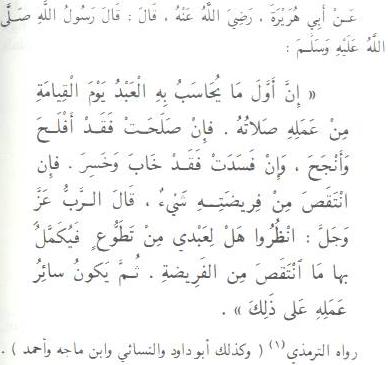 عَنْ أَبِي هُرَيْرَةَ ، رَضِيَ اللَّهُ عَنْهُ ، قَالَ : قَالَ رَسُولُ اللَّهِ صَلَّى
اللَّهُ عَلَيْهِ وَسَلَّمَ :
« إِنَّ أَوَّلَ مَا يُحَاسَبُ بِهِ الْعَبْدُ يَوْمَ الْقِيَامَةِ
مِنْ عَمَلِهِ صَلَاتُهُ . فإِنْ صَلَحَتْ فَقَدْ أَفْلَحَ
وَأَنْجَحَ ، وَإِنْ فَسَدَتْ فَقَدْ خَابَ وَخَسِرَ . فإِن
انْتَقَصَ مِنْ فَرِيضَتِهِ شَيْءٌ ، قَالَ الرَّبُّ عَزَّ
وَجَلَّ : انْظُرُوا هَلْ لِعَبْدِي مِنْ تَطَوُّعٍ فَيُكَمَّلُ
بها مَا انْتَقَصَ مِن الفَرِيضةِ . ثُمَّ يَكُونُ سائِرُ
عَمَلِهِ عَلى ذَلِكَ » .
رواه الترمذي (١) ( وكذلك أبو داود والنسائي وابن ماجه وأحمد ) .